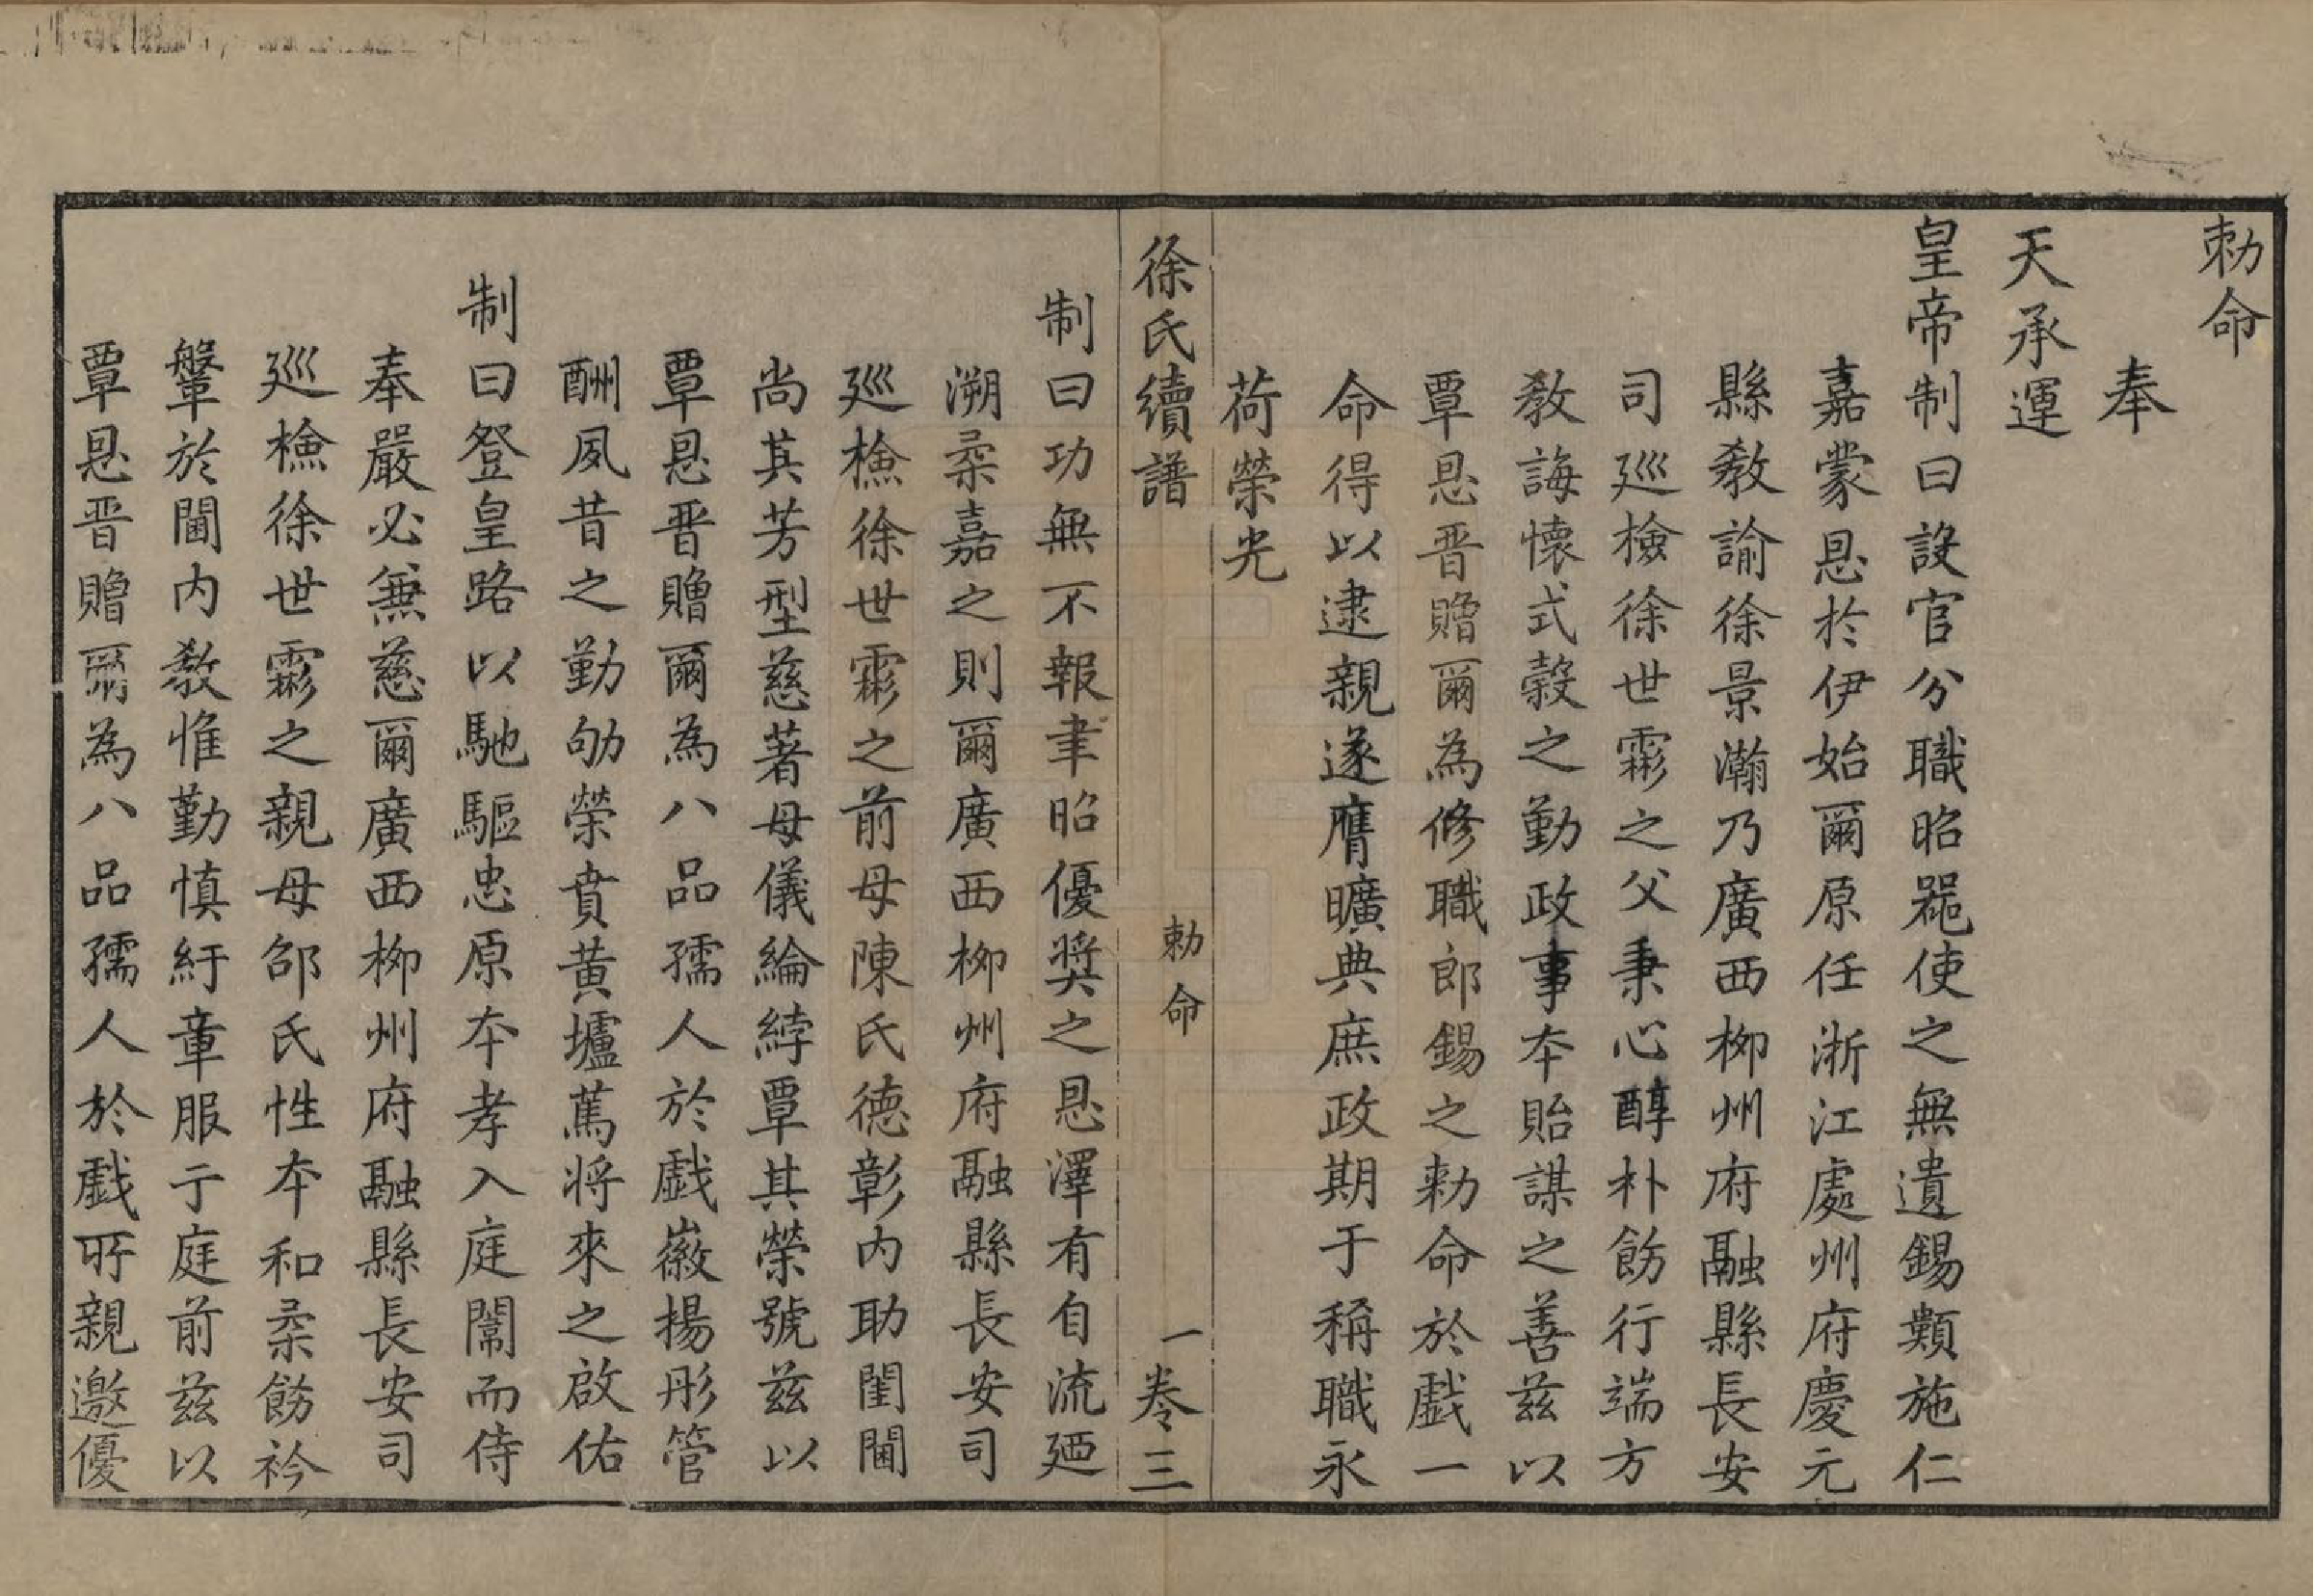 勅命
奉
天承運
皇帝制曰設官分職昭器使之無遺錫類施仁
嘉蒙恩於伊始爾原任浙江處州府慶元
縣教諭徐景瀚乃廣西柳州府融縣長安
司巡檢徐世霦之父秉心醇朴飭行端方
教誨懷式穀之勤政事本貽謀之善茲以
覃恩晋贈爾為修職郎錫之勅命於戲一
命得以逮親遂膺曠典庶政期于稱職永
荷榮光
徐氏續譜
勅命
一卷三
制曰功無不報聿昭優奬之恩澤有自流廼
溯柔嘉之則爾廣西柳州府融縣長安司
巡檢徐世霦之前母陳氏德彰内助閨閫
尚其芳型慈著母儀綸綍覃其榮號茲以
覃恩晋贈爾為八品孺人於戲徽揚彤管
酬夙昔之勤劬榮賁黄壚篤將來之啟佑
制曰登皇路以馳驅忠原本孝入庭闈而侍
奉嚴必兼慈爾廣西柳州府融縣長安司
巡檢徐世霦之親母邵氏性本和柔飭衿
鞶於閫内教惟勤慎紆章服于庭前茲以
覃恩晋贈爾為八品孺人於戲所親邀優